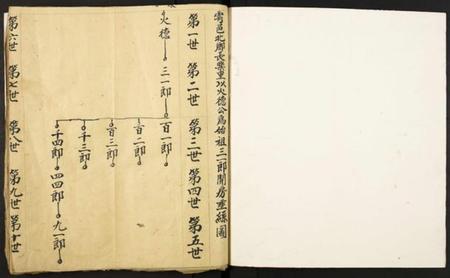 寧邑北鄉長興里以火德公為始祖三一郎開房垂絲圖
第一世 第二世 第三世 第四世 第五世
火德 三一郎 百一郎
百二郎
百三郎
千三郎
千四郎 四四郎 九一郎
第六世 第七世 第八世 第九世 第十世